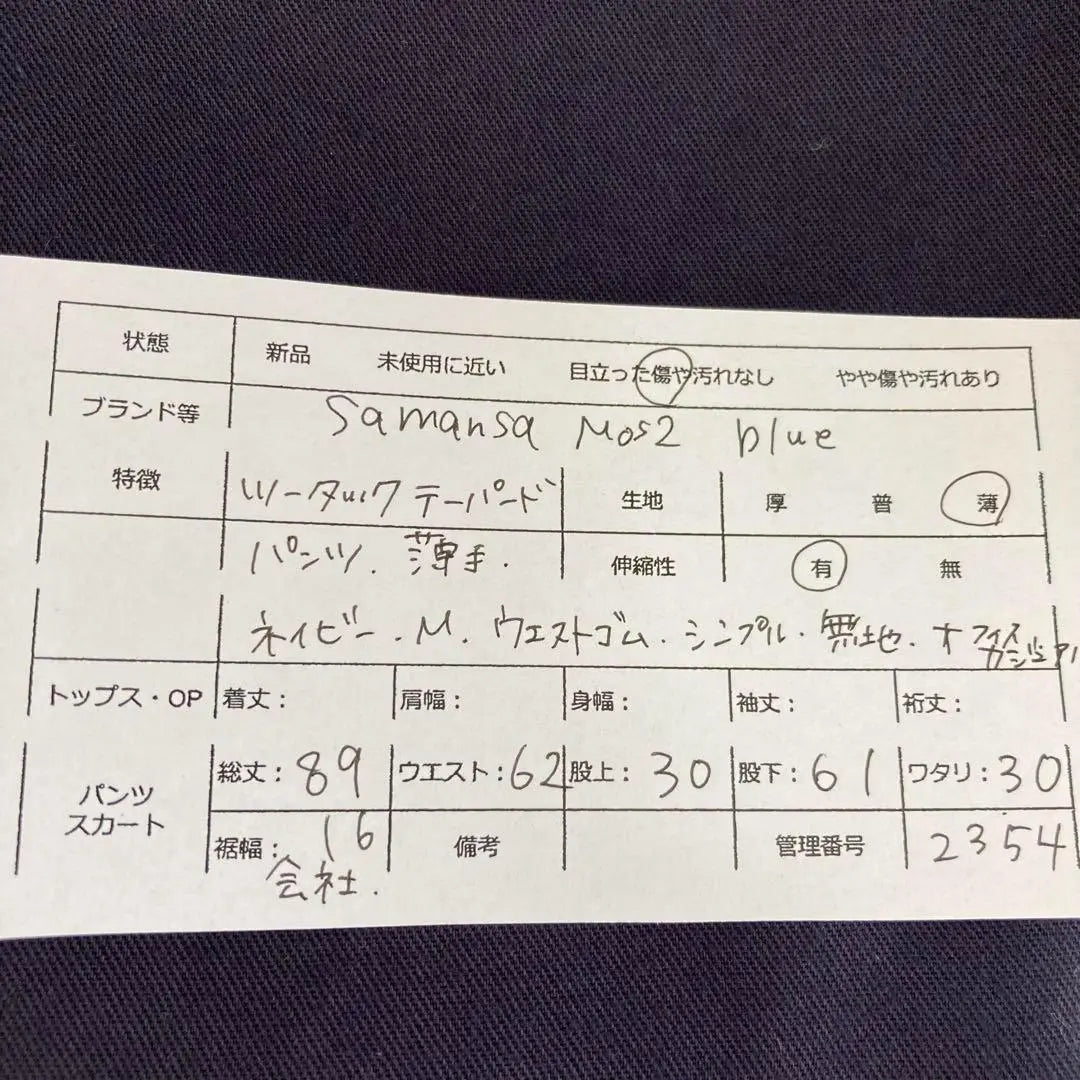 状態 新品 未使用に近い 目立った傷や汚れなし やや傷や汚れあり
ブランド等 Samansa Mos2 blue
特徴 ツータック テーパード 生地 厚 普 薄
パンツ. 薄手. 伸縮性 有 無
ネイビー. M. ウエストゴム. シンプル. 無地. オフィス
カジュアル
トップス・OP 着丈: 肩幅: 身幅: 袖丈: 裄丈:
パンツ 総丈: 89 ウエスト: 62 股上: 30 股下: 61 ワタリ: 30
スカート
裾幅: 16 備考 管理番号 2354
会社.